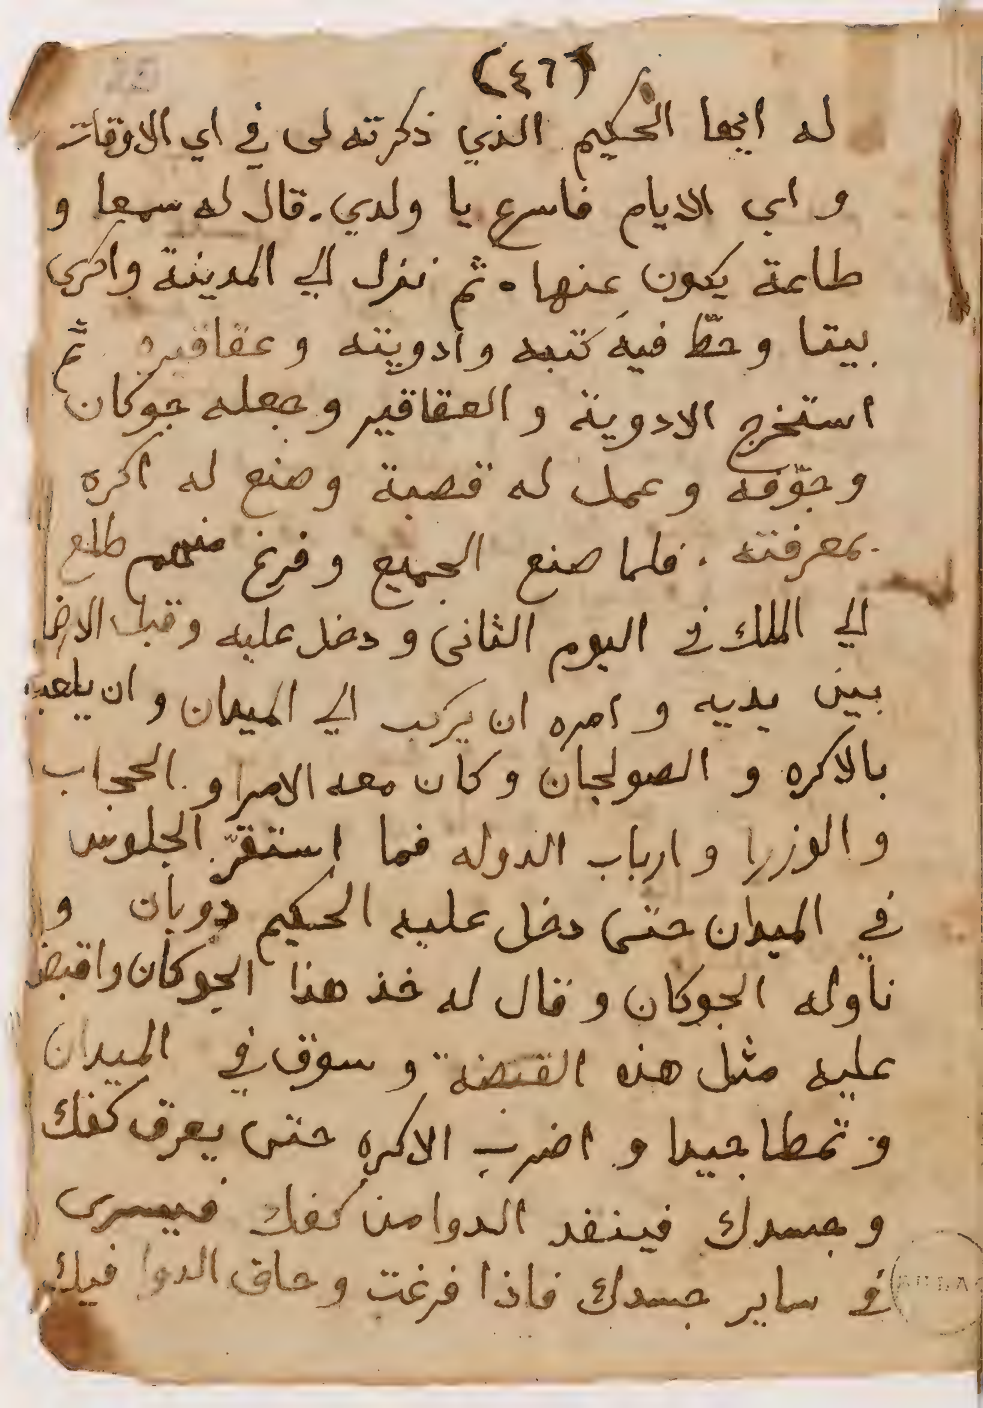 (٤٦)
له ايها الحكيم الذي ذكرته لى في اي الاوقات
و اى الايام فاسرع يا ولدي. قال له سمعا و
طاعة يكون عنها. ثم نزل الي المدينة واكرى
بيتا و حطّ فيه كتبه وادويته و عقاقيره ثم
استخرج الادوية و العقاقير و جعله جوكان
و جوّفه و عمل له قصبة و صنع له اكره
بمعرفته. فلما صنع الجميع و فرغ منهم طلع
الي الملك في اليوم الثانى و دخل عليه و قبل الارض
بين يديه و امره ان يركب الي الميدان و ان يلعب
بالاكره و الصولجان و كان معه الامرا و الحجاب
و الوزرا و ارباب الدوله فما استقرّ الجلوس
في الميدان حتى دخل عليه الحكيم دوبان و
ناوله الجوكان و قال له خذ هذا الجوكان واقبض
عليه مثل هذه القبضة و سوق في الميدان
و تمطا جيدا و اضرب الاكره حتى يعرق كفك
و جسدك فينفد الدوا من كفك فيسرى
في ساير جسدك فاذا فرغت و حاق الدوا فيك